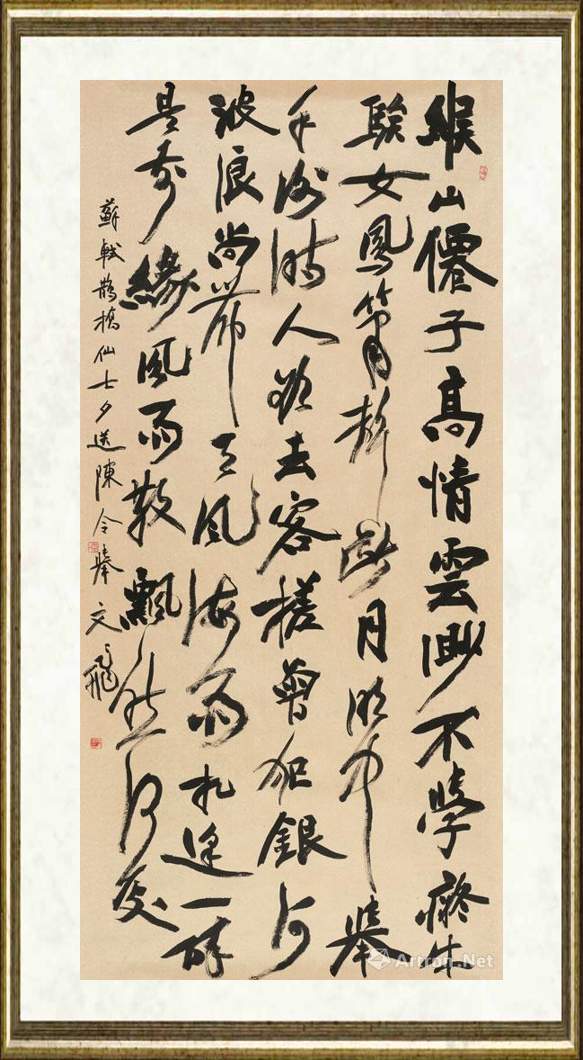 緱山僊子高情雲渺不學癡牛
騃女鳳簫聲斷月明中舉
手謝時人欲去客槎曾犯銀河
波浪尚帶天風海雨相逢一醉
是前緣風雨散飄然何處
蘇軾鵲橋仙七夕送陳令舉文飛
Artron.Net